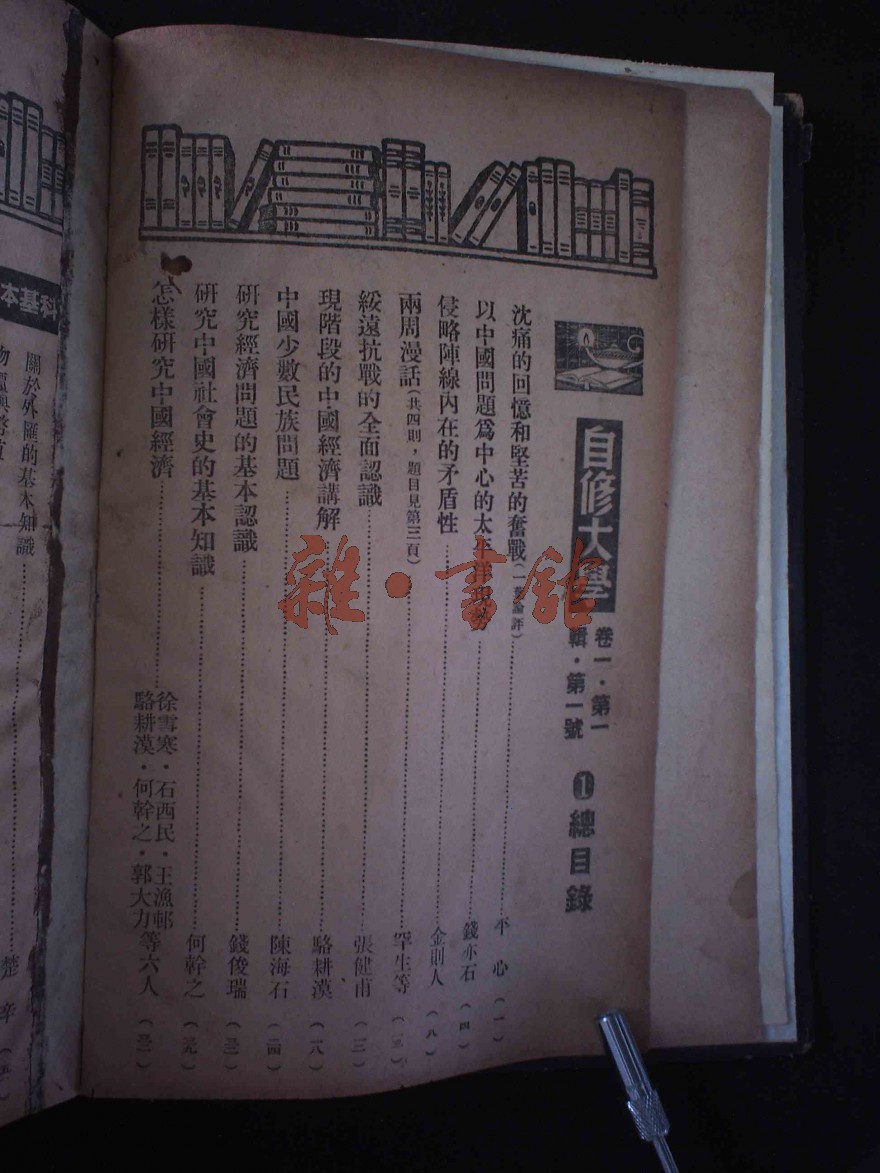 自修大學
卷一·第一
輯·第一號
❶總目錄
沈痛的回憶和堅苦的奮戰(一葉論評) 平心 (一)
以中國問題爲中心的太平洋現勢 錢亦石 (四)
侵略陣線內在的矛盾性 金則人 (八)
兩周漫話(共四則，題目見第三頁) 罕生等
綏遠抗戰的全面認識 張健甫 (一二)
現階段的中國經濟講解 駱耕漠 (一八)
中國少數民族問題 陳海石 (二四)
研究經濟問題的基本認識 錢俊瑞
研究中國社會史的基本知識 何幹之
怎樣研究中國經濟 徐雪寒·石西民·王漁邨
駱耕漠·何幹之·郭大力等六人
雜·書館
本基科
關於外匯的基本知識
楚